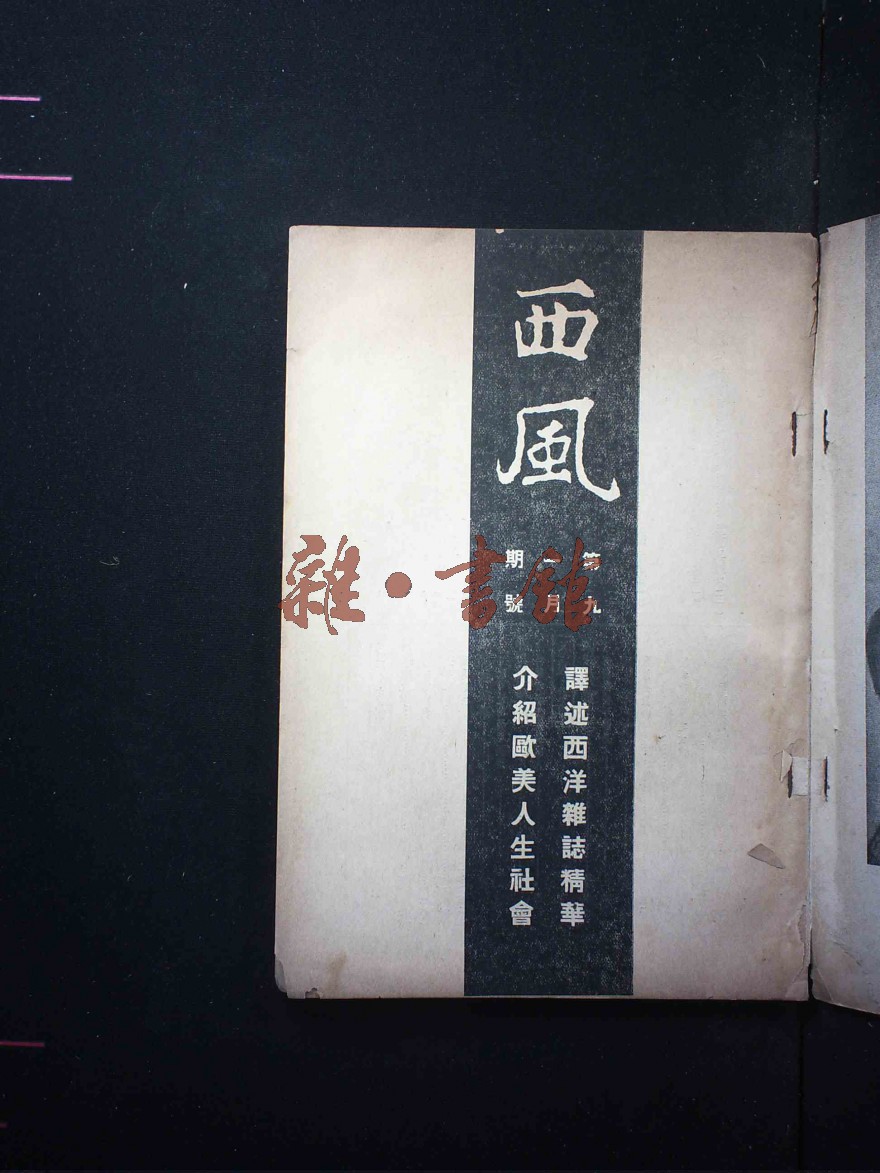 西風
第一期
九月號
譯述西洋雜誌精華
介紹歐美人生社會
雜·書館